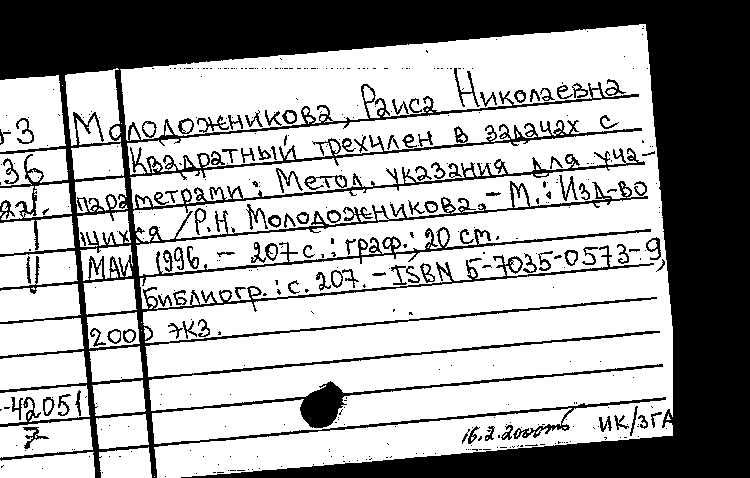 -3 Молодожникова, Раиса Николаевна
36 Квадратный трехчлен в задачах с
параметрами : Метод. указания для уча-
щихся / Р.Н. Молодожникова. - М. : Изд-во
МАИ, 1996. - 207 с. : граф. ; 20 см.
Библиогр. : с. 207. - ISBN 5-7035-0573-9,
2000 экз.
-42051
16.2.2000
ИК/ЗГА